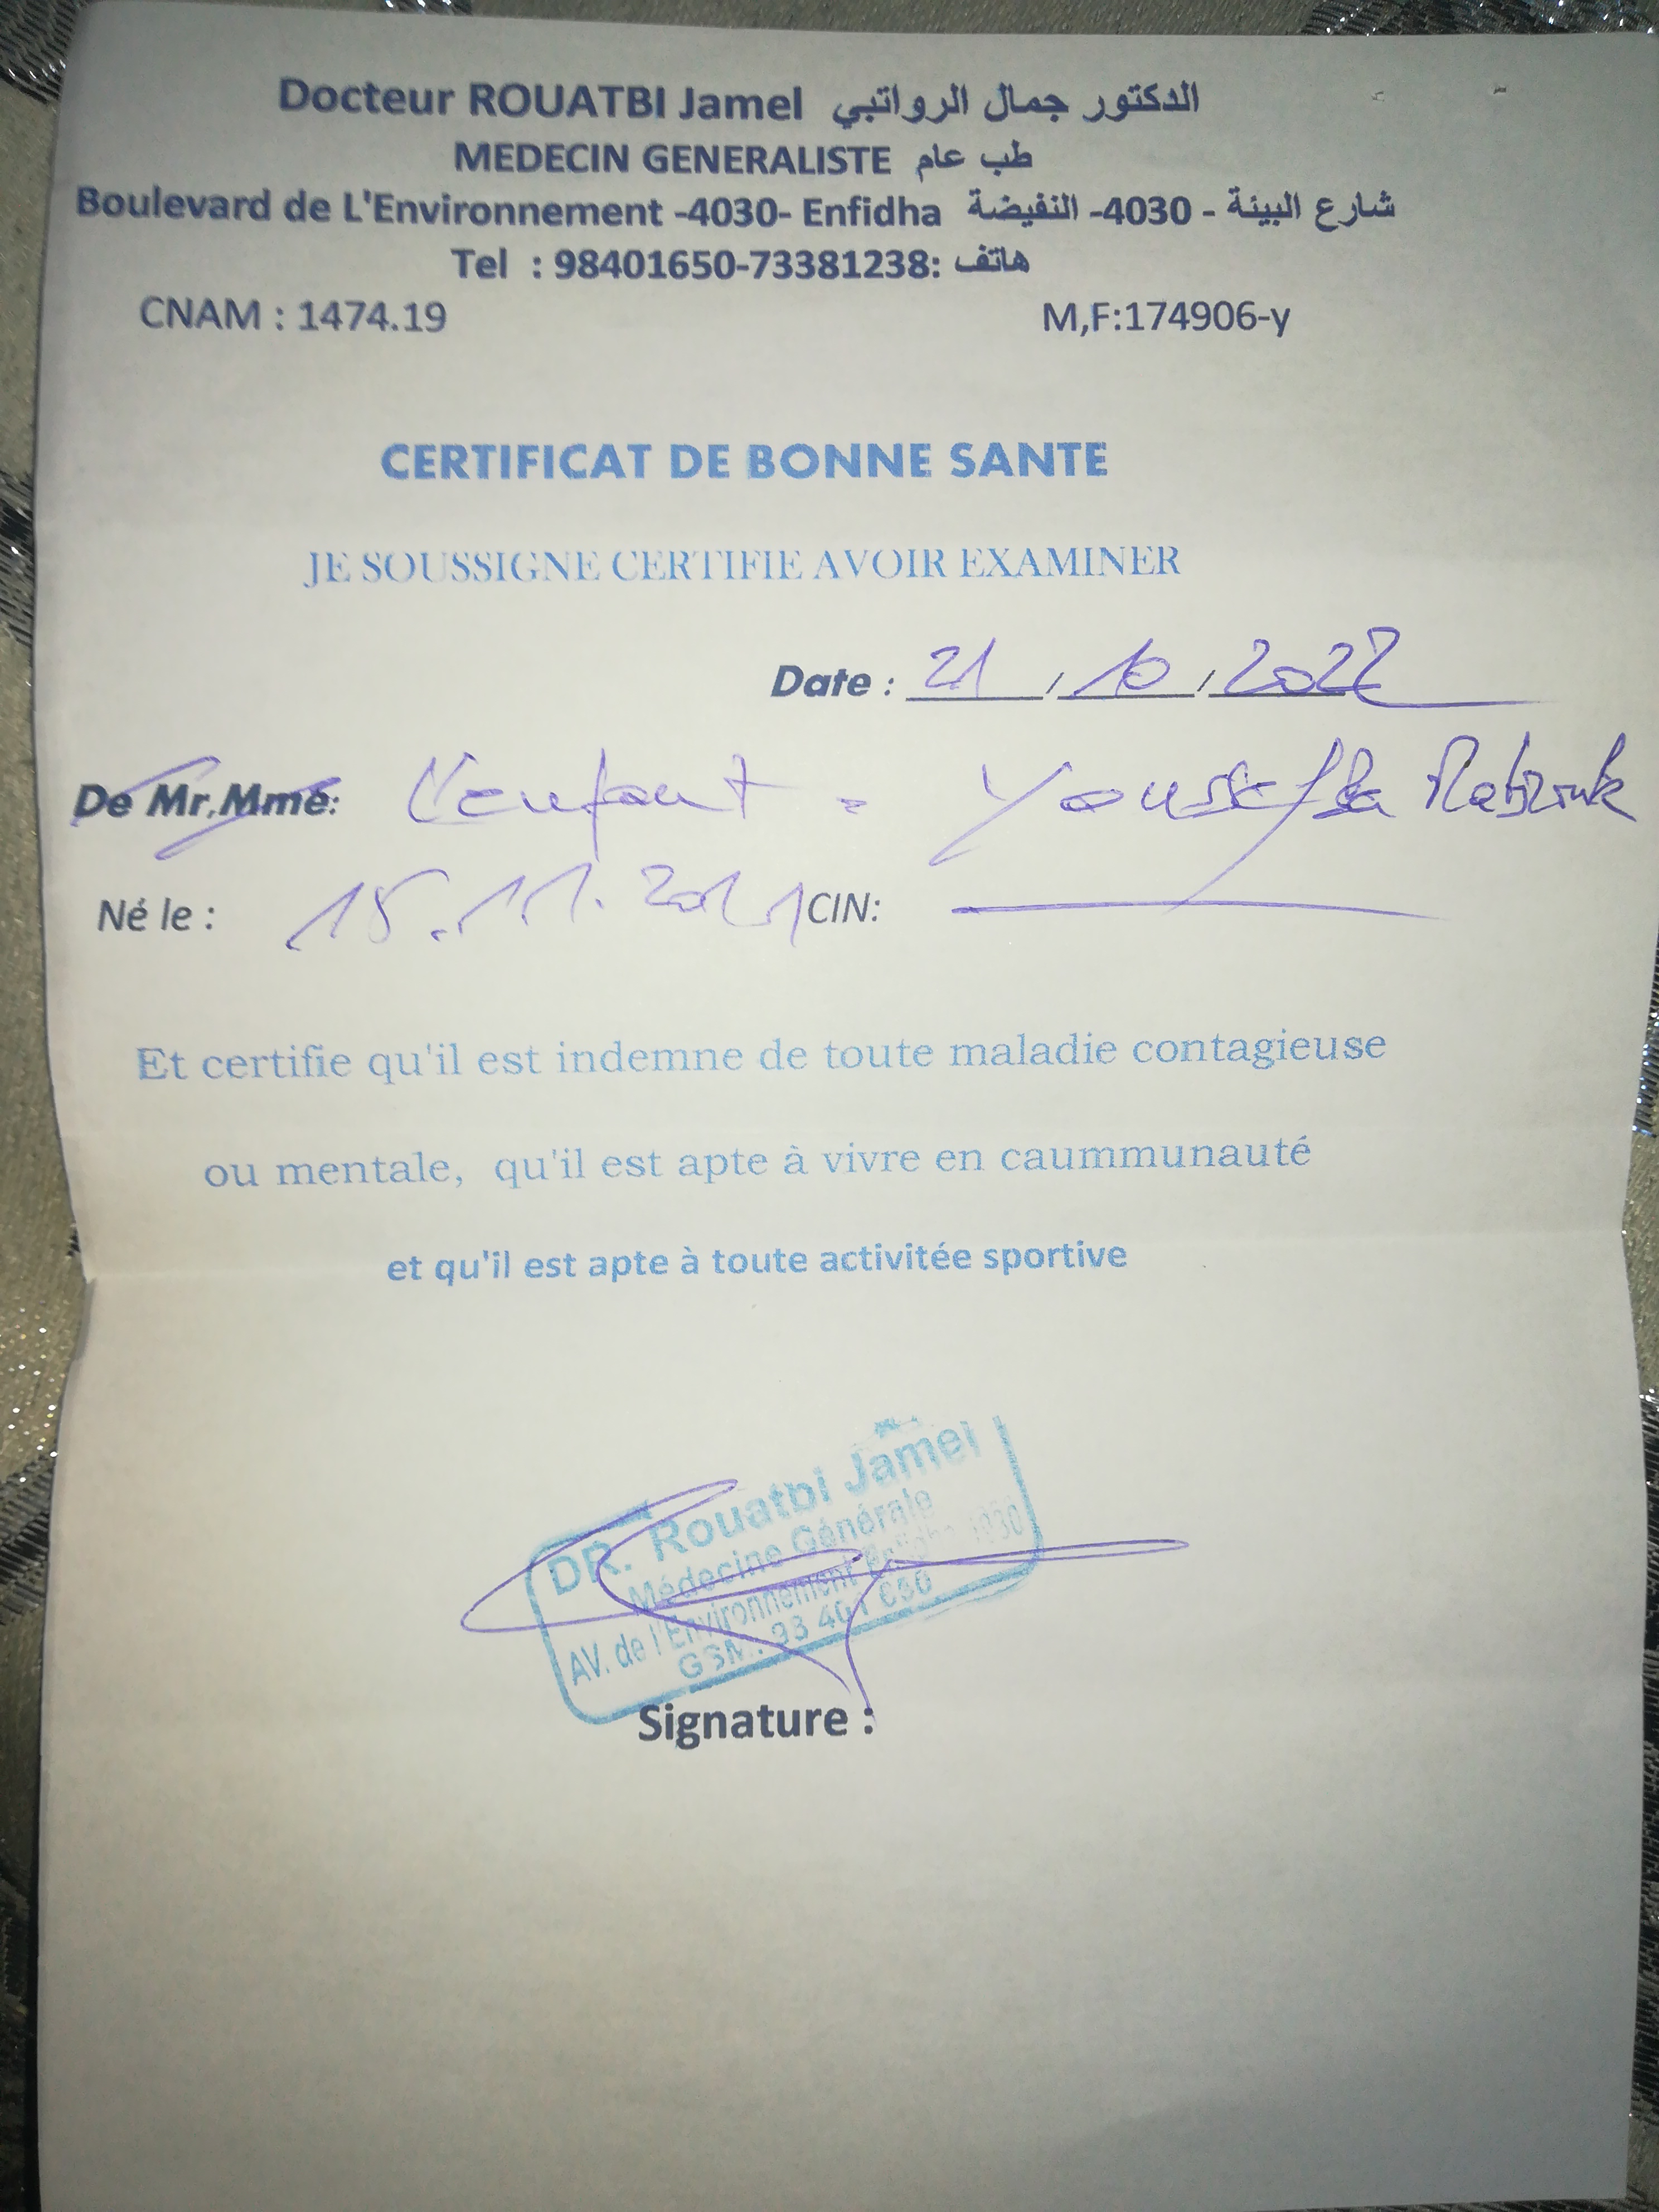 Docteur ROUATBI Jamel الدكتور جمال الرواتبي
MEDECIN GENERALISTE طب عام
Boulevard de L'Environnement -4030- Enfidha شارع البيئة - 4030- النفيضة
Tel : 98401650-73381238: هاتف
CNAM : 1474.19 M,F:174906-y
CERTIFICAT DE BONNE SANTE
JE SOUSSIGNE CERTIFIE AVOIR EXAMINER
Date : 21 / 10 / 2022
De Mr,Mme: L'enfant Youssef
Né le : 15.11.2021 CIN:
Et certifie qu'il est indemne de toute maladie contagieuse
ou mentale, qu'il est apte à vivre en caummunauté
et qu'il est apte à toute activitée sportive
DR. Rouatbi Jamel
Médecine Générale
AV. de l'Environnement Enfidha
GSM : 98 401 650
Signature :